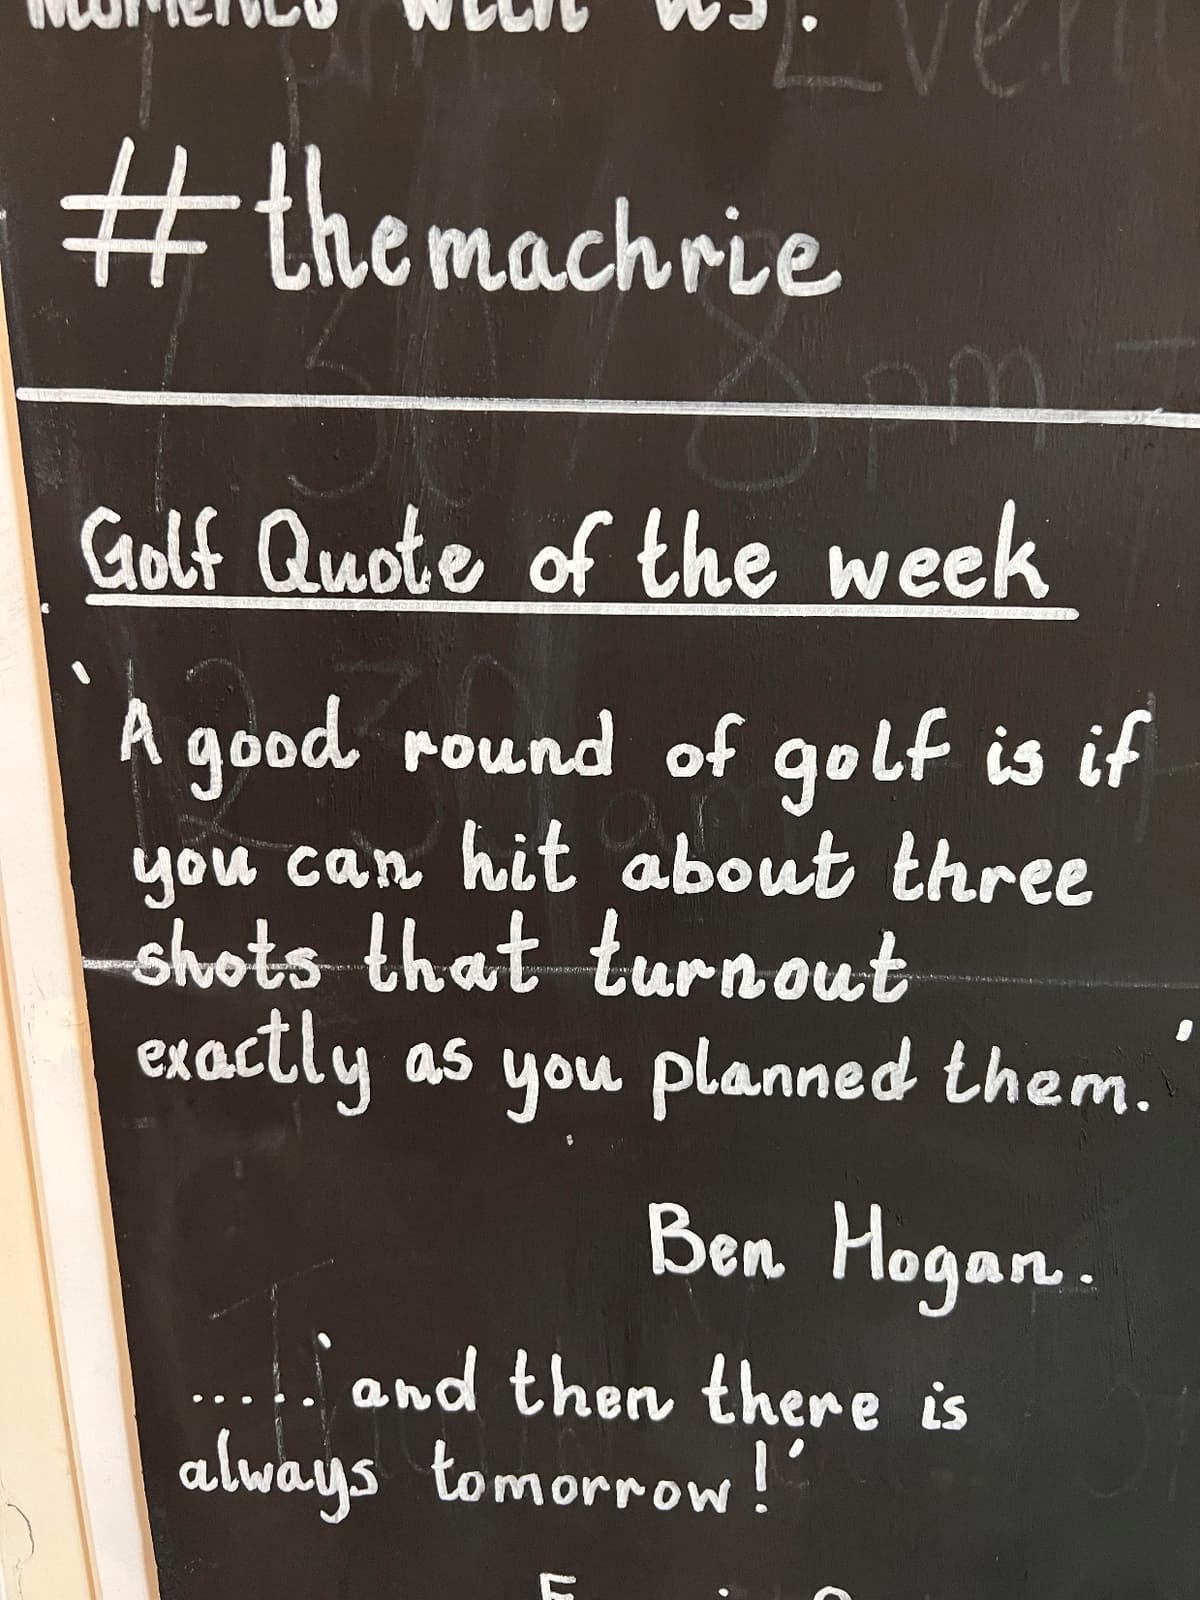 moments with us!
#themachrie
Golf Quote of the week
'A good round of golf is if
you can hit about three
shots that turnout
exactly as you planned them.'
Ben Hogan.
...... 'and then there is
always tomorrow!'